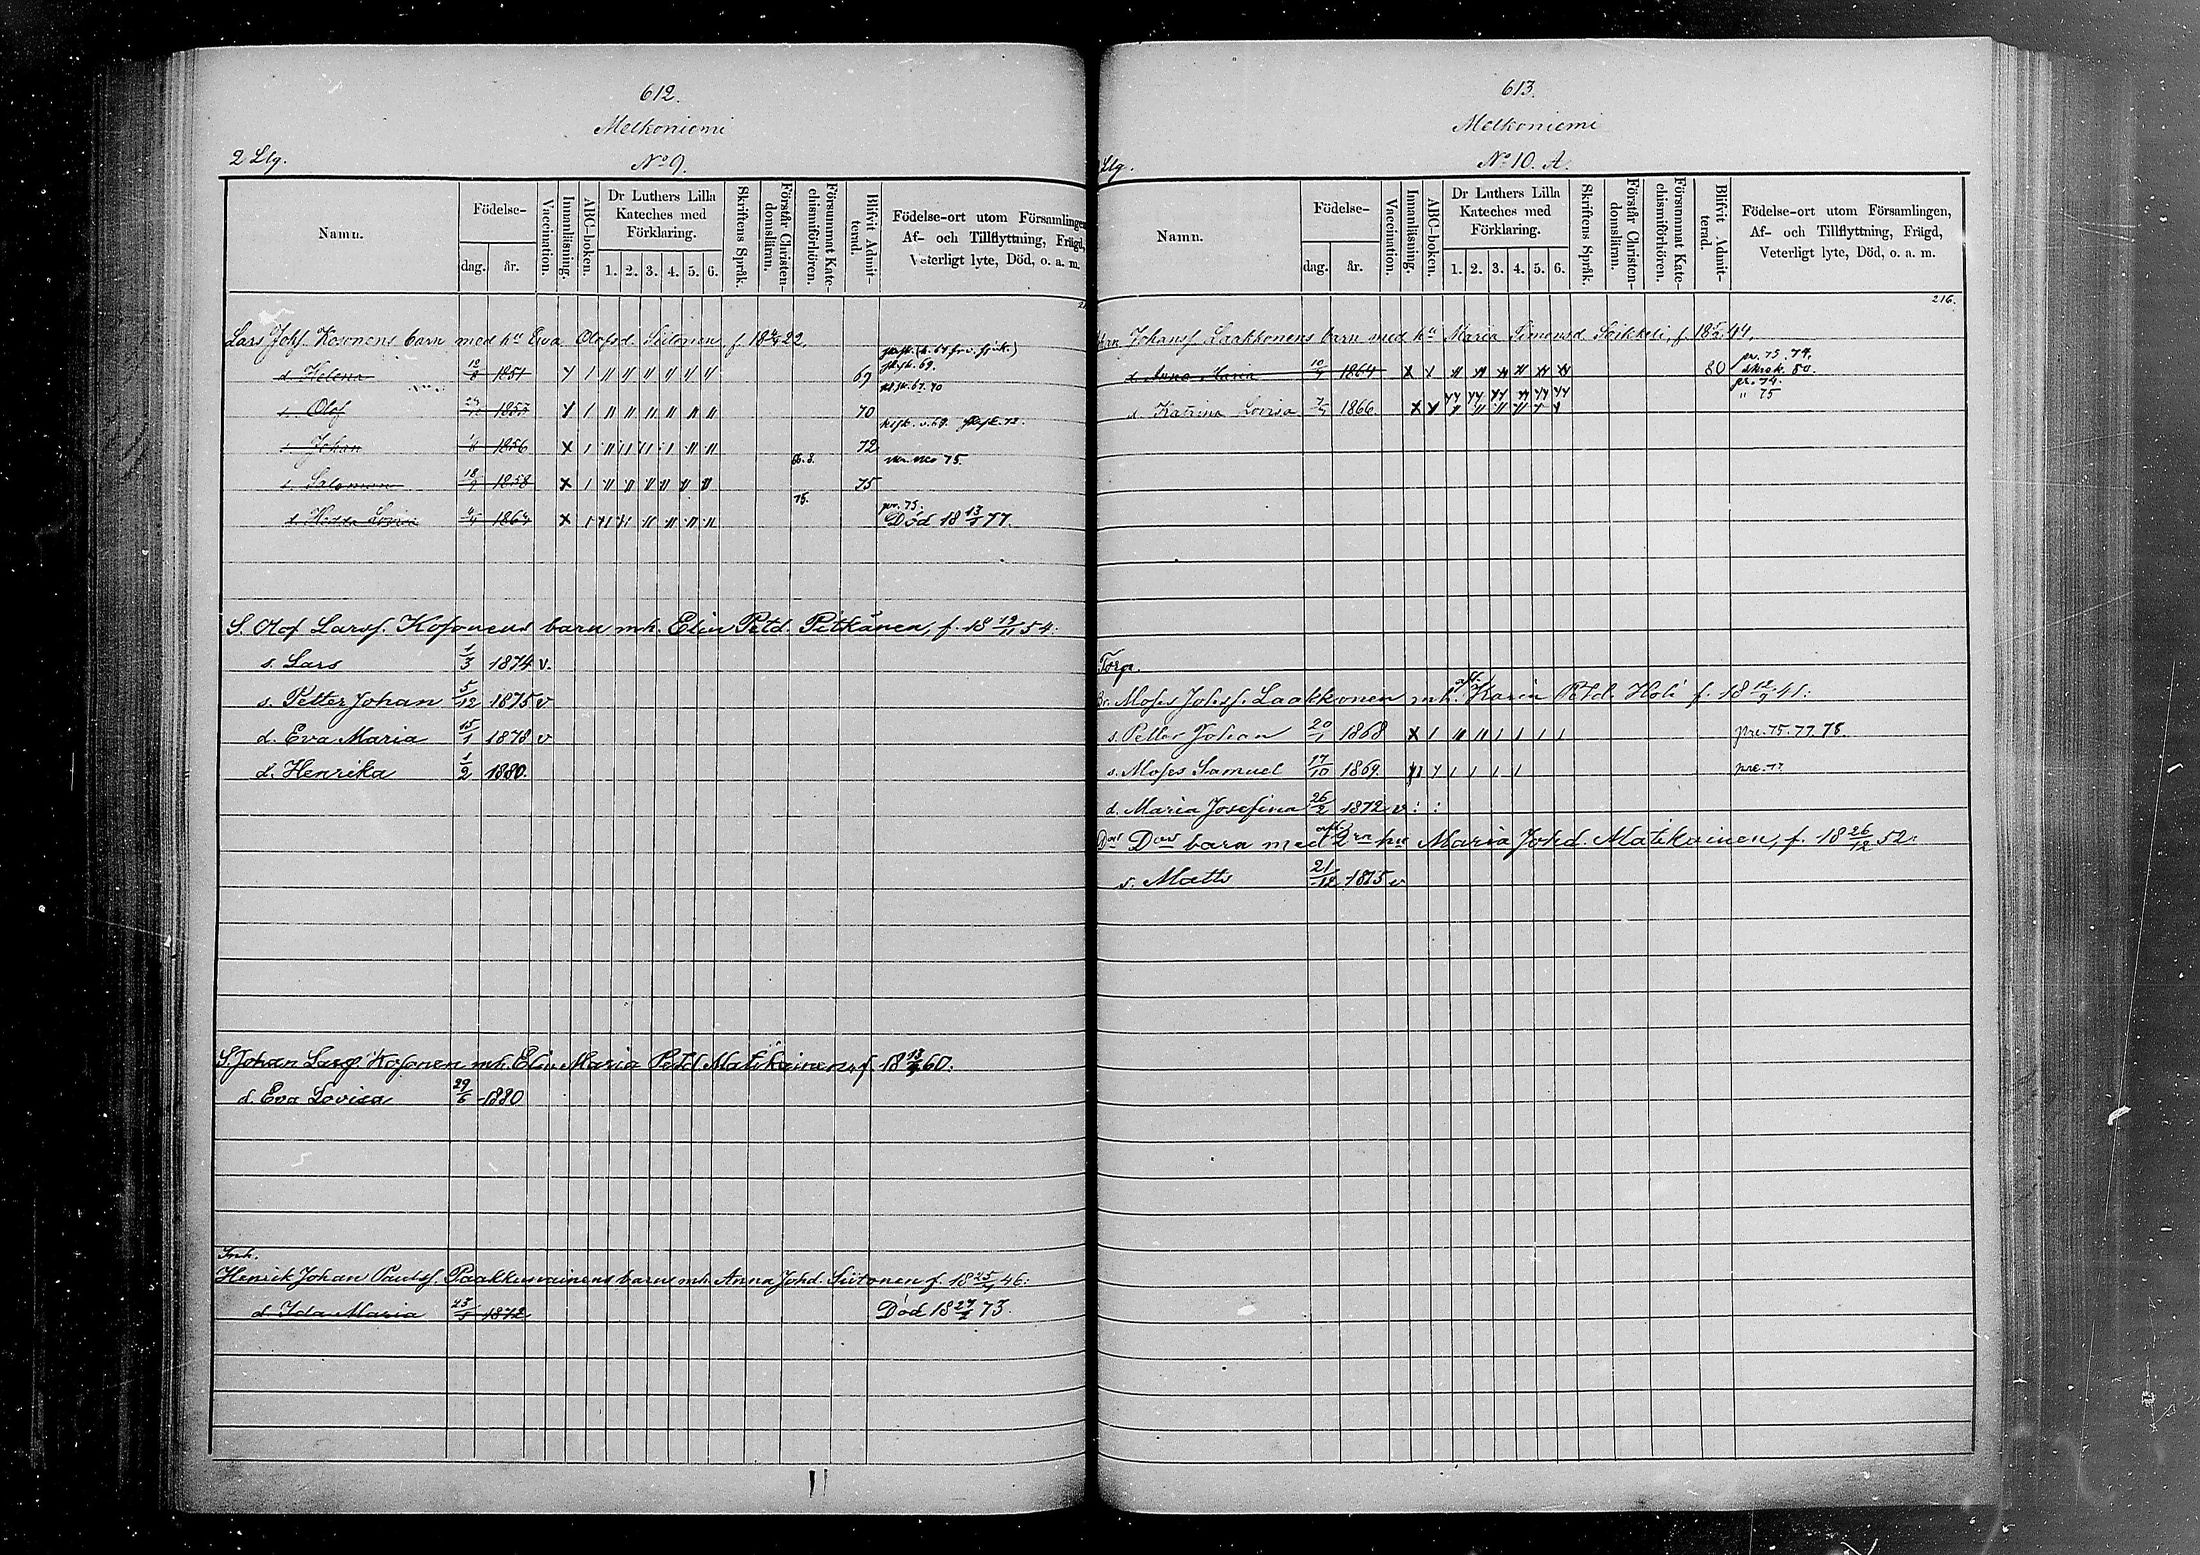 612.
Melkoniemi
2 Llg.
No 9.
Namn.
Födelse-
dag.
år.
Vaccination.
Innanläsning.
ABC-boken.
Dr Luthers Lilla
Kateches med
Förklaring.
1. 2. 3. 4. 5. 6.
Skriftens Språk.
Förstår Christen-
domsläran.
Försummat Kate-
chismiförhören.
Blifvit Admit-
terad.
Födelse-ort utom Församlingen
Af- och Tillflyttning, Frägd,
Veterligt lyte, Död, o. a. m.
Lars Johs. Kosonens barn med hu Eva Olofsd. Siitonen f. 22
d. Helena 10/8 1851 69
s. Olof 1853 70
s. Johan 1856 72
s. Salomon 18/9 1858 75
75.
pr. 75.
d. Hedda Lovisa 1864 Död 18 13/1 77.
S. Olof Larsf. Kosonens barn mh. Elin Petd. Pitkänen, f. 18 19/11 54:
s. Lars 1/3 1874 v.
s. Petter Johan 5/12 1875 v
d. Eva Maria 15/1 1878 v
d. Henrika 1/2 1880.
S. Johan Larsf. Kosonen mh. Elin Maria Petd. Matikainen, f. 18 60.
d. Eva Lovisa 29/6 1880
Inh.
Henrik Johan Paulsf. Paakkunainens barn mh. Anna Johd. Siitonen f. 18 25/4 46:
d. Ida Maria 23/5 1872 Död 18 73.
613.
Melkoniemi
Llg.
No 10. A.
Namn.
Födelse-
dag.
år.
Vaccination.
Innanläsning.
ABC-boken.
Dr Luthers Lilla
Kateches med
Förklaring.
1. 2. 3. 4. 5. 6.
Skriftens Språk.
Förstår Christen-
domsläran.
Försummat Kate-
chismiförhören.
Blifvit Admit-
terad.
Födelse-ort utom Församlingen,
Af- och Tillflyttning, Frägd,
Veterligt lyte, Död, o. a. m.
216.
Johansf. Laakkonens barn med hu Maria Simonsd. Seikkeli, f. 44.
pr. 75. 79.
d. Anna Maria 10/4 1864 80 skrsk. 80.
pr. 74.
" 75
d. Katrina Lovisa 1866
Torp.
Br. Moses Johsf. Laakkonen mh. Karin Petd. Holi f. 18 12/9 41:
s. Petter Johan 20/1 1868 pre. 75. 77. 78.
s. Moses Samuel 17/10 1869. pre. 77
d. Maria Josefina 26/2 1872 v
Dens Dens barn med 2ra hu Maria Johd. Matikainen, f. 18 26/12 52:
s. Matts 21/12 1875 v